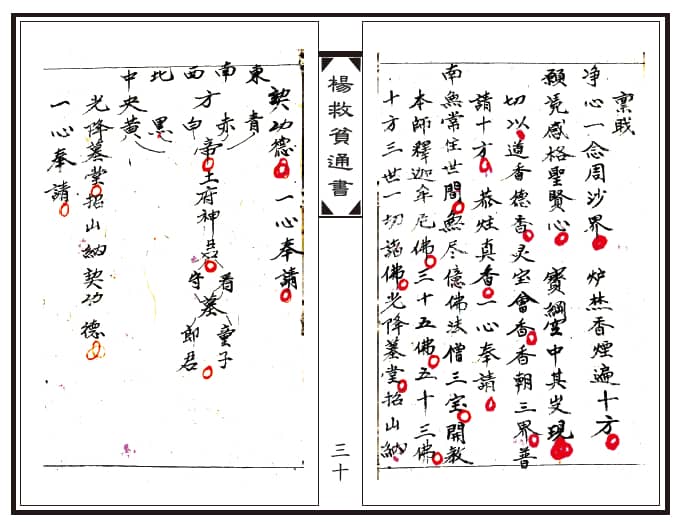 稟戝
净心一念周沙界 炉焚香煙遍十方
願凭感格聖賢心 寶綱空中其発現
切以道香德香灵宝會香香朝三界普
請十方 恭炷真香一心奉請
南無常住世間無尽億佛法僧三宝開教
本師釋迦牟尼佛三十五佛五十三佛
十方三世一切諸佛光降墓堂招山納
楊救貧通書
三十
契功德 一心奉請
東 青
南 赤
西方白帝土府神君 看墓童子
守墓郎君
北 黑
中央黄
光降墓堂招山納契功德
一心奉請